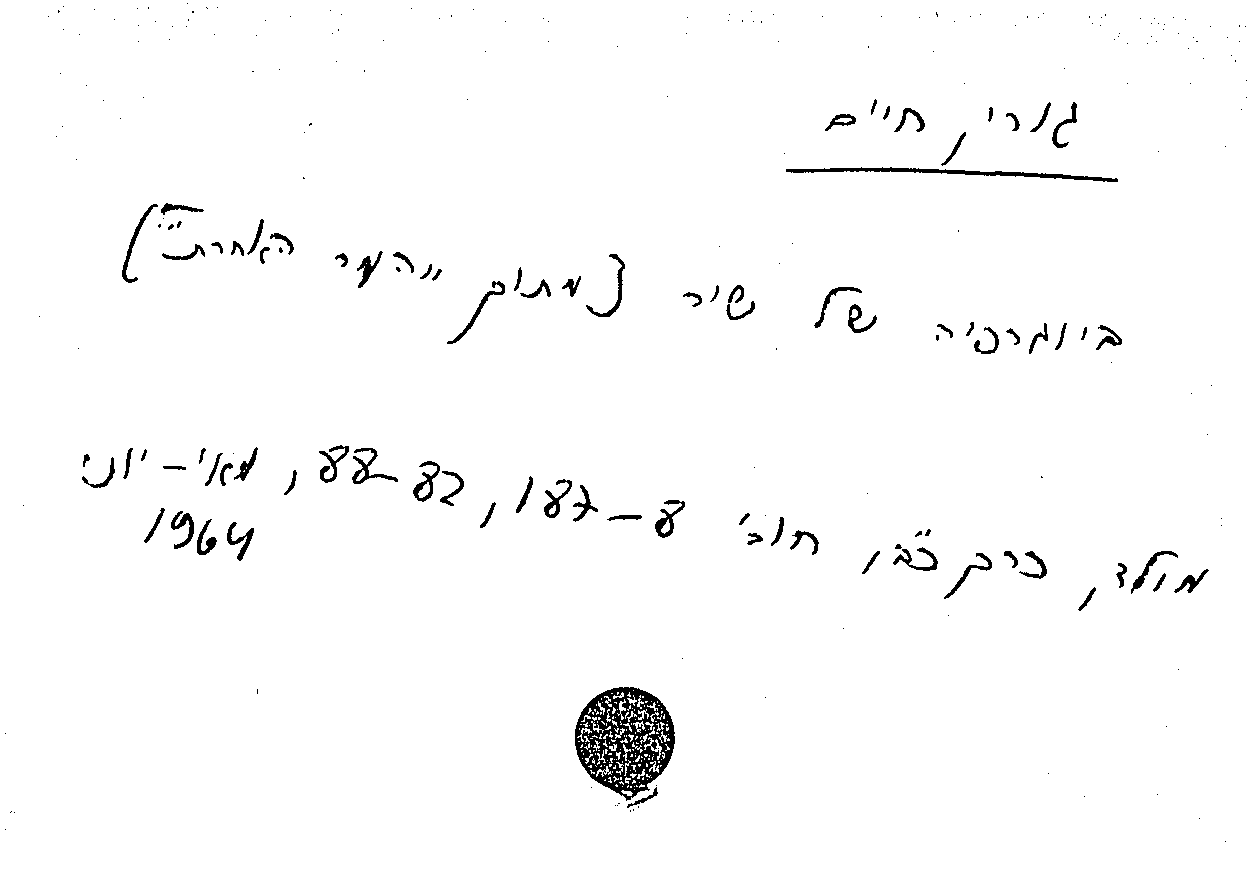 גורי, חיים
ביוגרפיה של שיר [מתוך "הצד האחרת"]
מולד, כרך כ"ב, חוב' 187-8, 82-88, מאי-יוני
1964